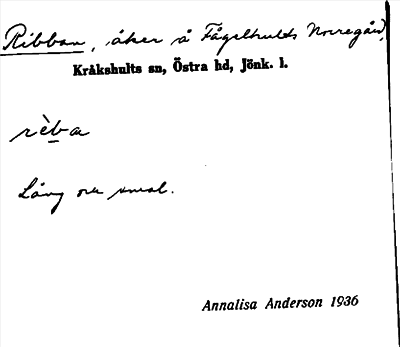 Ribban, åker å Fågelhults Norregård,
Kråkshults sn, Östra hd, Jönk. l.
rèba
Lång och smal.
Annalisa Anderson 1936